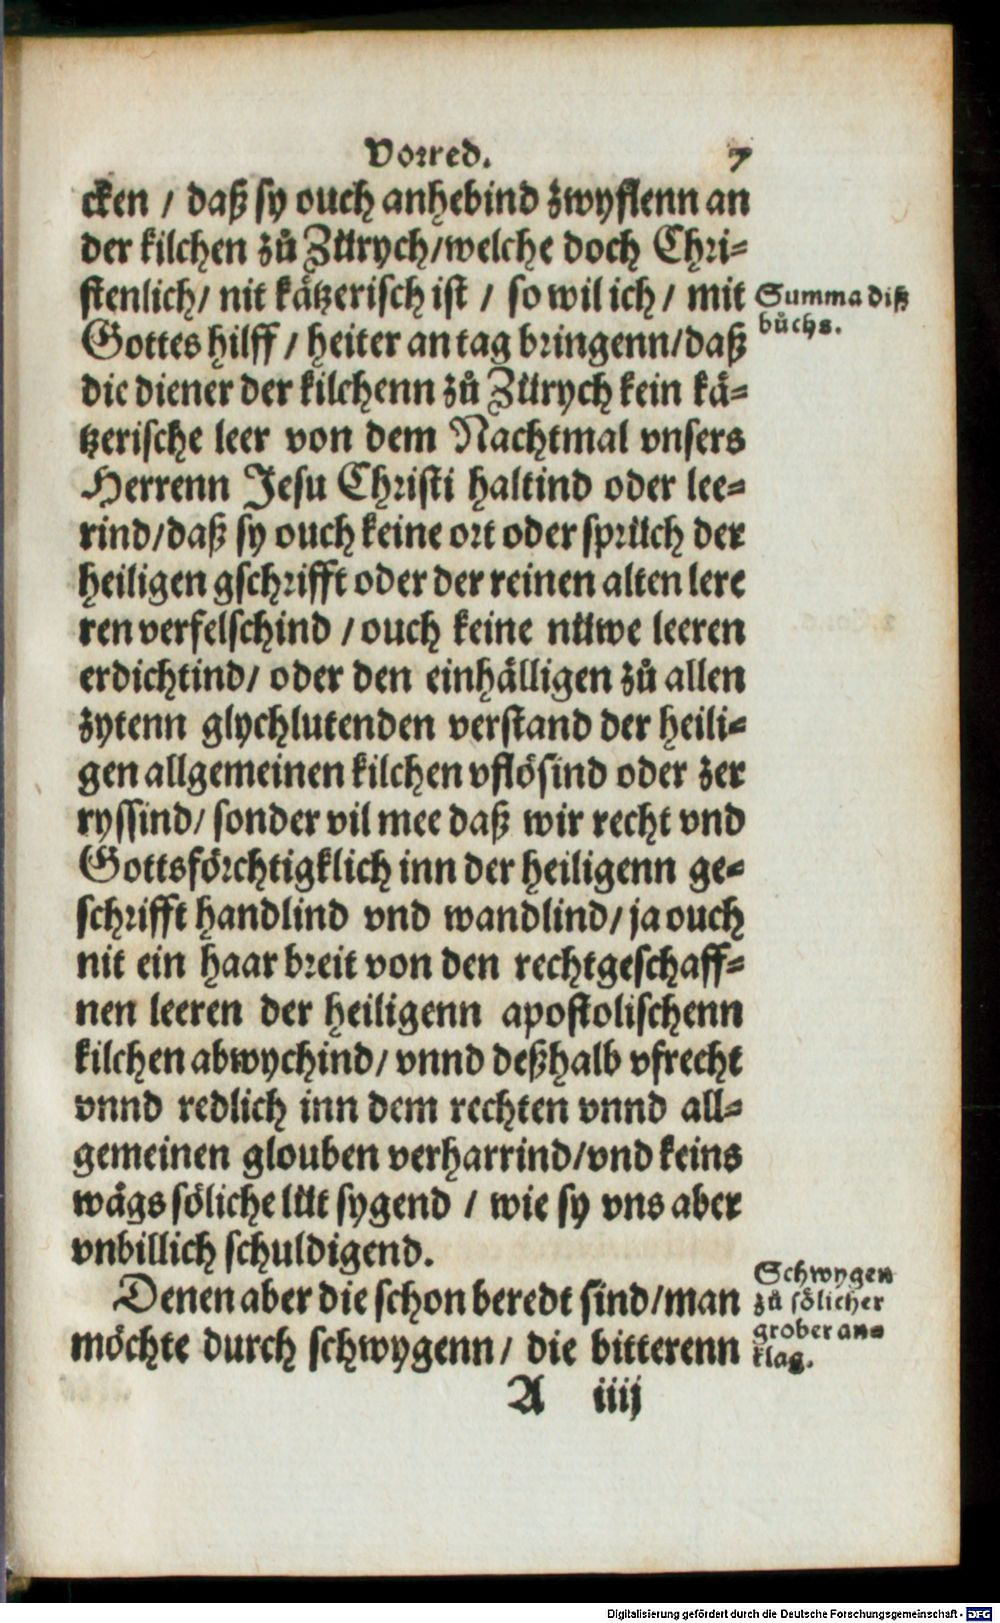 Vorred. 7
cken / daß sy ouch anhebind zwyflenn an
der kilchen zů Zürych/welche doch Chri-
stenlich/ nit kätzerisch ist / so wil ich / mit
Summa diß
bůchs.
Gottes hilff / heiter an tag bringenn/daß
die diener der kilchenn zů Zürych kein kä-
tzerische leer von dem Nachtmal vnsers
Herrenn Jesu Christi haltind oder lee-
rind/daß sy ouch keine ort oder sprüch der
heiligen gschrifft oder der reinen alten lere
ren verfelschind / ouch keine nüwe leeren
erdichtind/ oder den einhälligen zů allen
zytenn glychlutenden verstand der heili-
gen allgemeinen kilchen vflösind oder zer
ryssind/ sonder vil mee daß wir recht vnd
Gottsförchtigklich inn der heiligenn ge-
schrifft handlind vnd wandlind/ ja ouch
nit ein haar breit von den rechtgeschaff-
nen leeren der heiligenn apostolischenn
kilchen abwychind/ vnnd deßhalb vfrecht
vnnd redlich inn dem rechten vnnd all-
gemeinen glouben verharrind/vnd keins
wägs söliche lüt sygend / wie sy vns aber
vnbillich schuldigend.
Denen aber die schon beredt sind/man
möchte durch schwygenn/ die bitterenn
Schwygen
zů sölicher
grober an-
klag.
A iiij
Digitalisierung gefördert durch die Deutsche Forschungsgemeinschaft - DFG